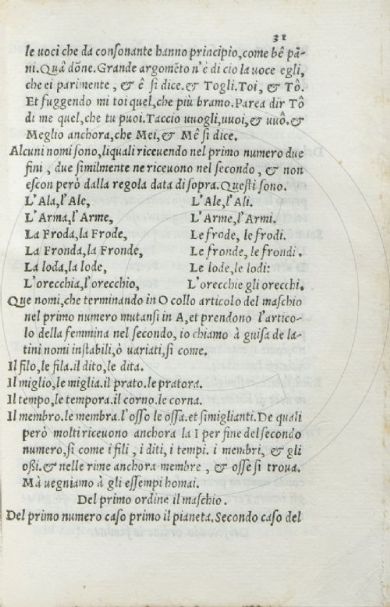 31
le uoci che da consonante hanno principio, come bẽ pã-
ni. Quã dõne. Grande argomẽto n'è di cio la uoce egli,
che ei parimente, & ê si dice. & Togli. Toi, & Tô.
Et fuggendo mi toi quel, che più bramo. Parea dir Tô
di me quel, che tu puoi. Taccio uuogli, uuoi, & uuô. &
Meglio anchora, che Mei, & Mê si dice.
Alcuni nomi sono, liquali riceuendo nel primo numero due
fini, due similmente ne riceuono nel secondo, & non
escon però dalla regola data di sopra. Questi sono.
L'Ala, l'Ale, L'Ale, l'Ali.
L'Arma, l'Arme, L'Arme, l'Armi.
La Froda, la Frode, Le frode, le frodi.
La Fronda, la Fronde, Le fronde, le frondi.
La loda, la lode, Le lode, le lodi:
L'orecchia, l'orecchio, L'orecchie gli orecchi.
Que nomi, che terminando in O collo articolo del maschio
nel primo numero mutansi in A, et prendono l'artico-
lo della femmina nel secondo, io chiamo à guisa de la-
tini nomi instabili, ò uariati, si come.
Il filo, le fila. il dito, le dita.
Il miglio, le miglia. il prato. le pratora.
Il tempo, le tempora. il corno. le corna.
Il membro. le membra. l'osso le ossa. et simiglianti. De quali
però molti riceuono anchora la I per fine del secondo
numero, si come i fili, i diti, i tempi. i membri, & gli
ossi. & nelle rime anchora membre, & osse si troua.
Mà uegniamo à gli essempi homai.
Del primo ordine il maschio.
Del primo numero caso primo il pianeta. Secondo caso del